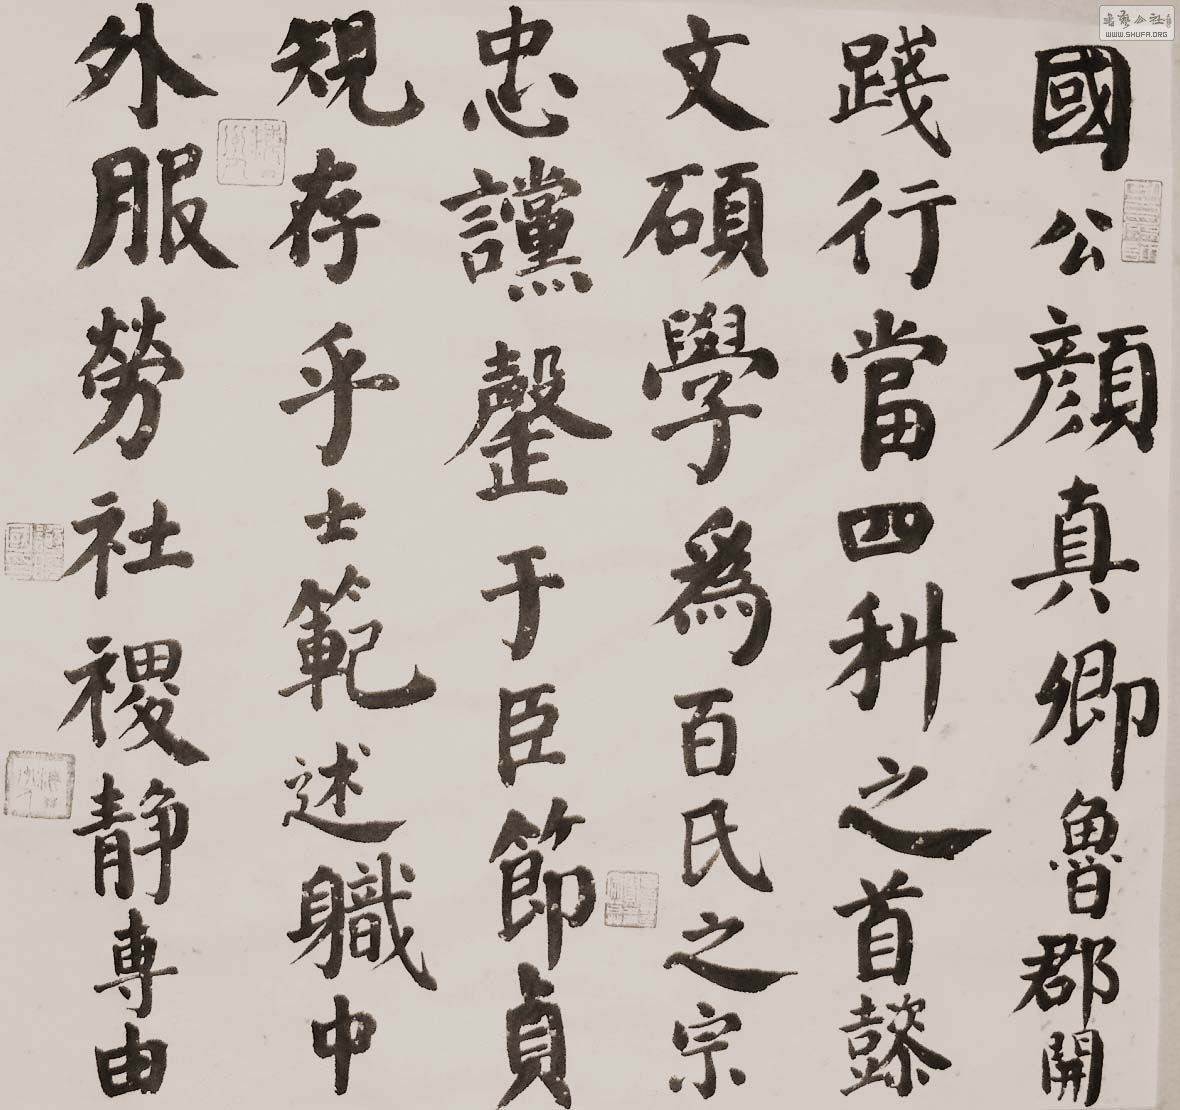 國公顏真卿魯郡開
踐行當四科之首懿
文碩學為百氏之宗
忠讜罄于臣節貞
規存乎士範述職中
外服勞社稷靜專由
WWW.SHUFA.ORG